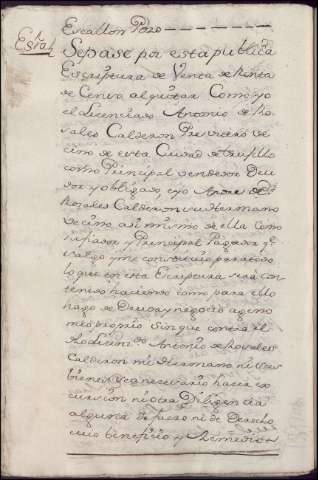 Escallon Pozo
Esra
Sepase por esta publica
Escriptura de Venta de Renta
de Censo al quitar Como yo
el Licenciado Antonio de Ro
sales Calderon Presvitero ve
cino de esta Ciudad de trujillo
como Principal vendedor Deu
dor y obligado, e yo Andre de
Rosales Calderon su Hermano
vecino asi mismo de ella Como
su fiador y Principal Pagador qe
salgo y me constituio para todo
lo que en esta Escriptura sera con
tenido haciendo como para ello
hago de Deuda y negocio ageno
mio proprio sin que contra el
dho Licenci.do Antonio de Rosales
Calderon mi Hermano ni sus
bienes sea necesario hacer ex
cursion ni otra Diligencia
alguna de fuero ni de Derecho
cuio beneficio y Remedio